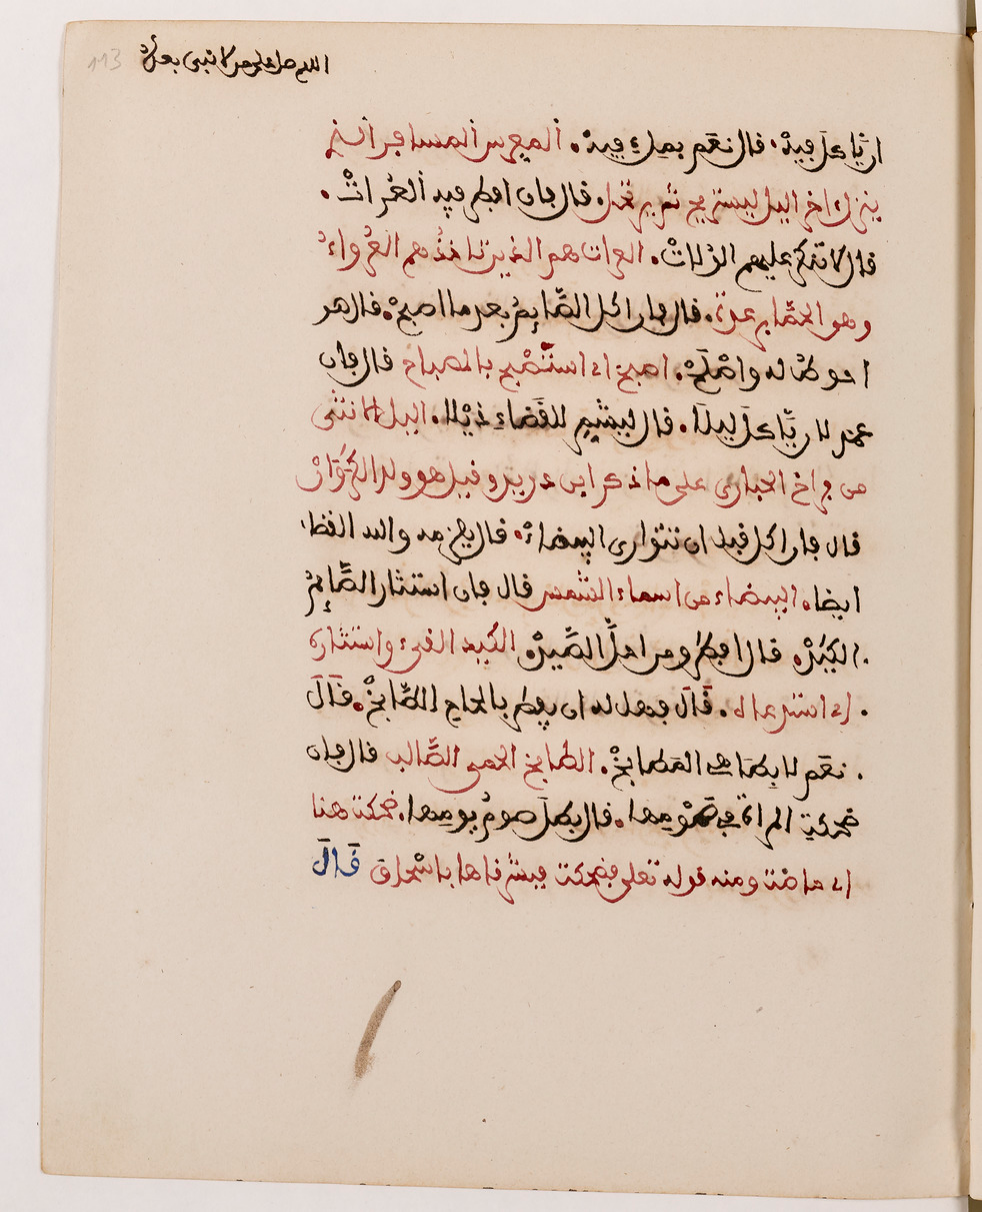 اللهم صل على من لا نبي بعده
ان يأكل فيه. قال نعم بملء فيه. المعرس المسافر الذي
ينزل ءاخر اليل ليستريح ثم يرتحل. قال فان افطر فيه العُراتْ.
قال لا تنكر عليهم الولاتْ. العرات هم الذين تاخذهم العُرواءُ
وهو الحمّا برعدة. قال فان اكل الصّايم بعد ما اصبحْ. قال هو
احوط له واصْلَحْ. اصبح اي استصْبح بالمصباح قال فان
عمد لان يأكل ليلا. قال ليشمر للقَضاء ذيْلا. اليل الانثى
من فراخ الحبارى على ما ذكر ابن دريد وقيل هو ولد الكَرَوَانْ
قال فان اكل قبل ان تتوارى البيضاءْ. قال يلزمه والله القضا
ايضا. البيضاء من اسماء الشمس قال فان استثار الصّايمُ
الكَيْدْ. قال افطر ومن احلَّ الصّيدْ. الكيد القيء واستثاره
اي استدعاه. قَالَ فهل له ان يفطر بالحاح الطّابخْ. قَالَ
نعم لا بِطَاهي المطابخْ. الطابخ الحمى الصّالب قال فان
ضحكت المراة في صَوْمِها. قال بطلَ صومُ يومِها. ضحكت هنا
اي حاضت ومنه قوله تعلى فضحكت فبشرناها باسْحاق قَالَ